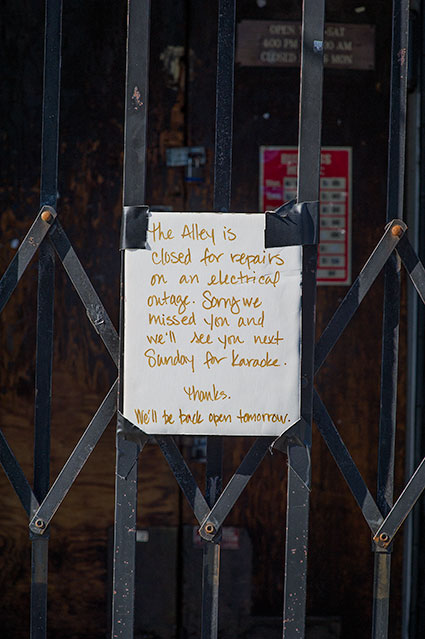 OPEN
SAT
400 PM
AM
CLOSED
MON
The Alley is
closed for repairs
on an electrical
outage. Sorry we
missed you and
we'll see you next
Sunday for karaoke.
Thanks.
We'll be back open tomorrow.